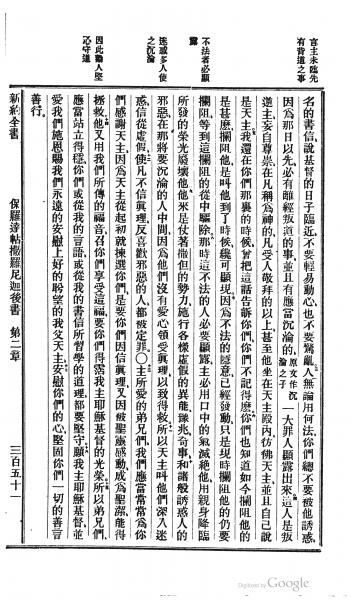 言主未臨先
有背道之事
不法者必顯
露
迷惑多人使
之沉淪
因此勸人堅
心守道
名的書信說基督的日子臨近不要輕易動心也不要驚亂人無論用何法你們總不要被他誘惑
因為那日以先必有離經叛道的事並且有應當沉淪的原文作沉淪之子一大罪人顯露出來這人是叛
逆主妄自尊崇在凡稱為神的凡受人敬拜的以上甚至他坐在天主殿內彷彿天主並且自己說
是天主我還在你們那裏的時候曾把這話告訴你們你們不記得麼你們也知道如今攔阻他的
是甚麼攔阻他是叫他到了時候纔可顯現因為不法的隱意已經發動只是現時攔阻他的仍要
攔阻等到這攔阻的從中驅除那時這不法的人必要顯露主必用口中的氣滅絕他用親身降臨
所發的榮光廢壞他他來是仗著撒但的勢力施行各樣虛假的異能豫兆奇事和諸般誘惑人的
邪惡在那將要沉淪的人中間因為他們沒有愛心領受真理以致得救所以天主叫他們深入迷
惑信從虛假使凡不信真理反喜歡邪惡的人都被定罪○主所愛的弟兄們我們應當常常為你
們感謝天主因為天主從起初就揀選你們是要你們因信真理又因被聖靈感動成為聖潔能得
拯救他又用我們所傳的福音召你們享受這福要你們得霑我主耶穌基督的光榮所以弟兄們
應當站立得穩你們或從我的言語或從我的書信所習學的道理都要堅守願我主耶穌基督並
愛我們施恩賜我們永遠的安慰上好的盼望的我父天主安慰你們的心堅固你們一切的善言
善行
新約全書 保羅達帖撒羅尼迦後書 第二章 三百五十一
Digitized by Google